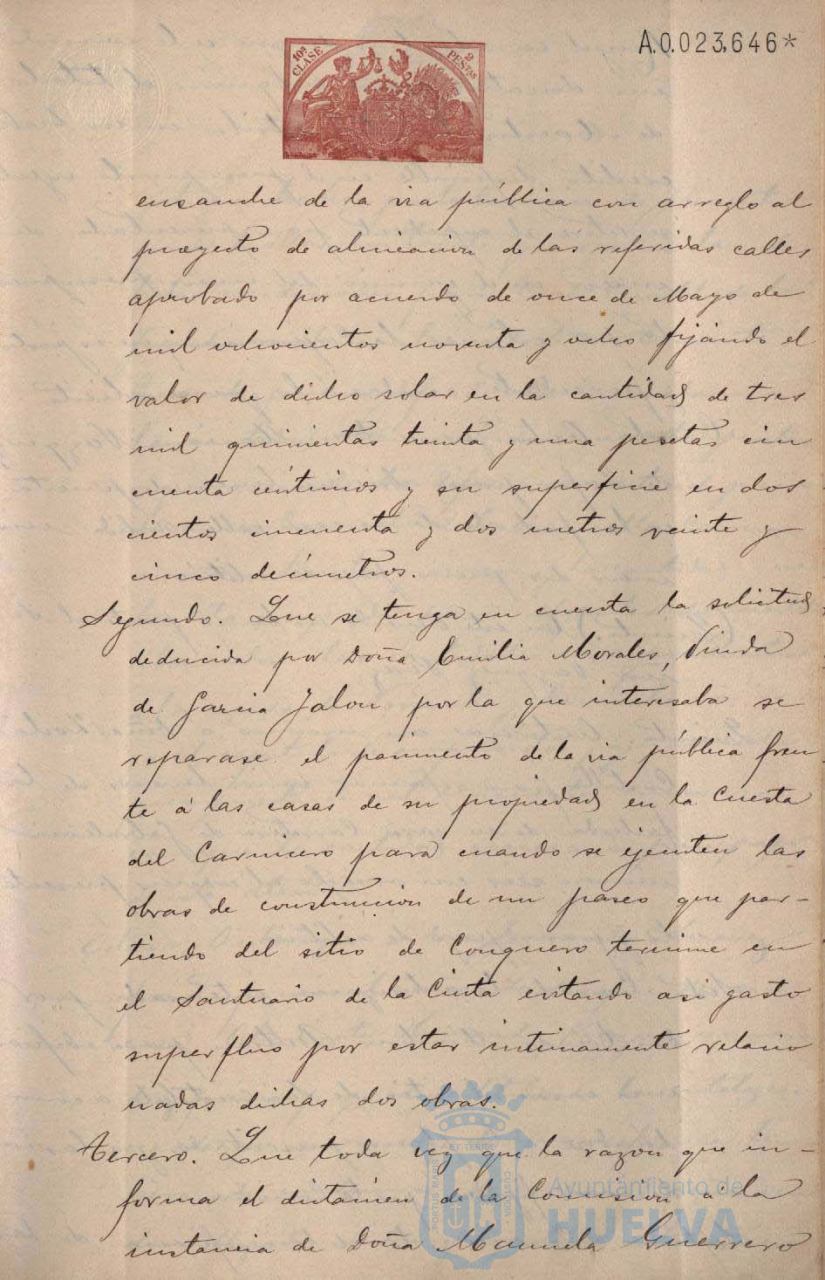 A.0.023.646*
10ª CLASE 2 PESETAS
ensanche de la via pública con arreglo al
proyecto de alineacion de las referidas calles
aprobado por acuerdo de once de Mayo de
mil ochocientos noventa y ocho fijándo el
valor de dicho solar en la cantidad de tres
mil quinientas treinta y una pesetas cin
cuenta céntimos y su superficie en dos
cientos cincuenta y dos metros veinte y
cinco decímetros.
Segundo. Que se tenga en cuenta la solicitud
deducida por Doña Emilia Morales, Viuda
de Garcia Jalon por la que interesaba se
reparase el pavimento de la via pública fren
te á las casas de su propiedad en la Cuesta
del Carnicero para cuando se ejecuten las
obras de construccion de un paseo que par-
tiendo del sitio de Conquero termine en
el Santuario de la Cinta evitando asi gasto
superfluo por estar intimamente relacio
nadas dichas dos obras.
Tercero. Que toda vez que la razon que in-
forma el dictámen de la Comision á la
instancia de Doña Manuela Guerrero
Ayuntamiento de
HUELVA